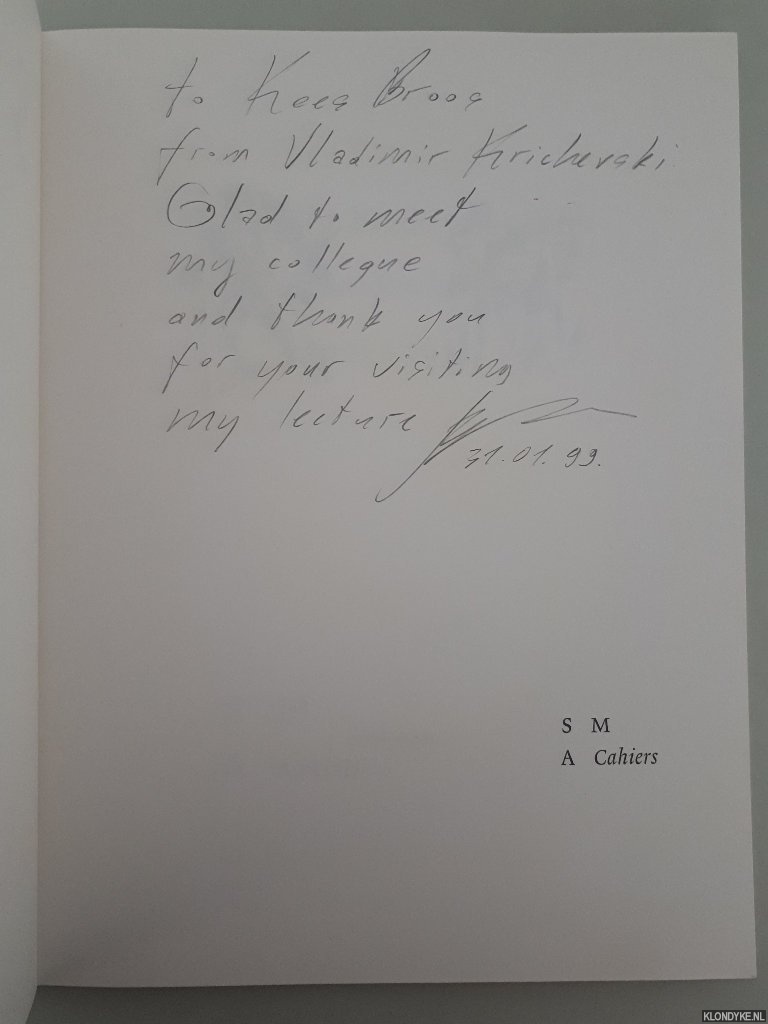 to Kees Broos
from Vladimir Krichevski
Glad to meet
my collegue
and thank you
for your visiting
my lecture
31.01.99.
S M
A Cahiers
KLONDYKE.NL